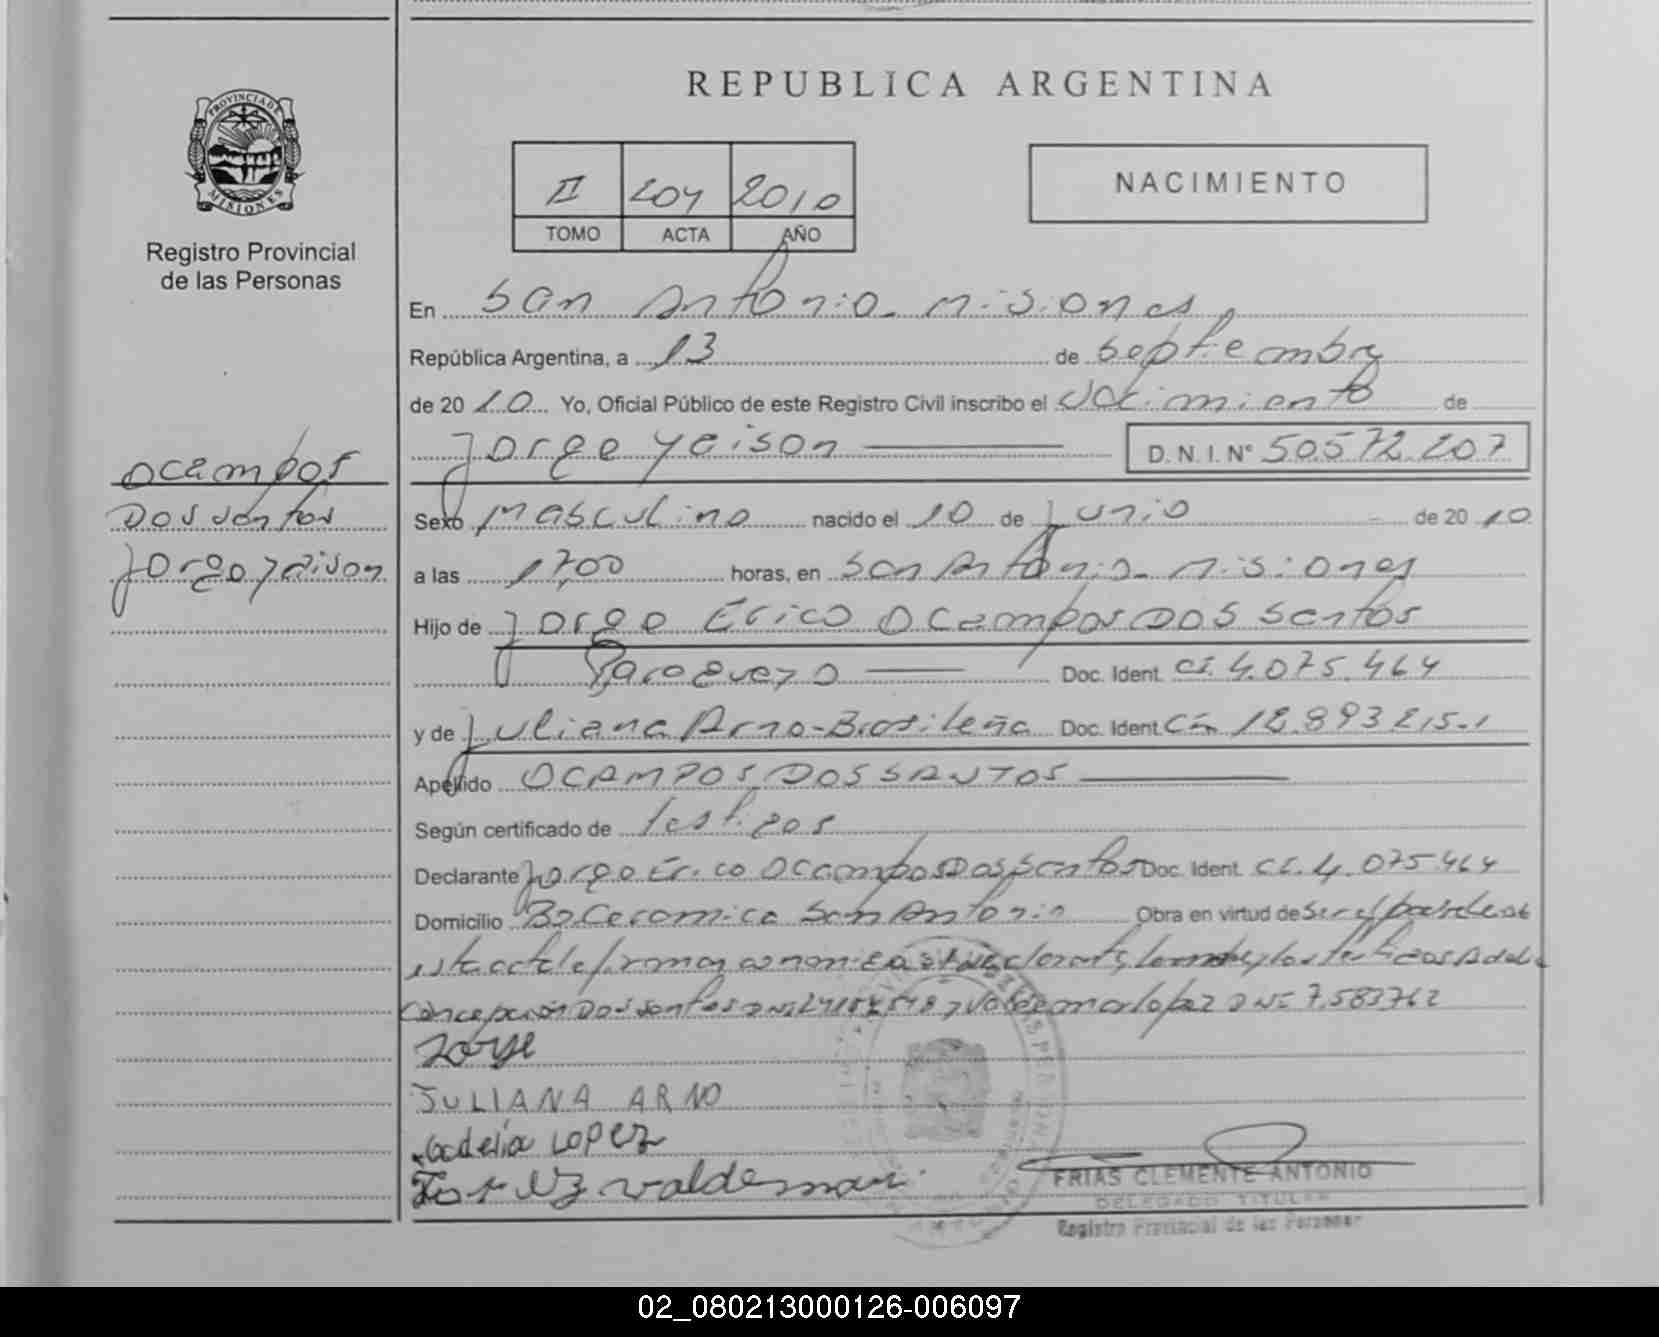 REPUBLICA ARGENTINA
PROVINCIA DE MISIONES
Registro Provincial
de las Personas
II 204 2010
TOMO ACTA AÑO
NACIMIENTO
En San Antonio Misiones
República Argentina, a 13 de Septiembre
de 20 10 Yo, Oficial Público de este Registro Civil inscribo el de
Jorge Yeison D.N.I. N° 50572.207
Ocampos
Dos Santos
Jorge Yeison
Sexo Masculino nacido el 10 de Junio de 20 10
a las 17,00 horas, en San Antonio Misiones
Hijo de Jorge Erico Ocampos Dos Santos
Paraguayo Doc. Ident. CI. 4.075.464
y de Juliana Arno - Brasileña Doc. Ident 12.893215-1
Apellido OCAMPOS DOS SANTOS
Según certificado de Testigos
Declarante Jorge Erico Ocampos Dos Santos Doc. Ident. CI. 4.075.464
Domicilio Bo Ceramica San Antonio Obra en virtud de Ser el padre
los testigos
Concepcion Dos Santos y Valdemar Lopez DNI 7.583762
Jorge
JULIANA ARNO
LOPEZ
valdemar
FRIAS CLEMENTE ANTONIO
DELEGADO TITULAR
Registro Provincial de las Personas
02_080213000126-006097